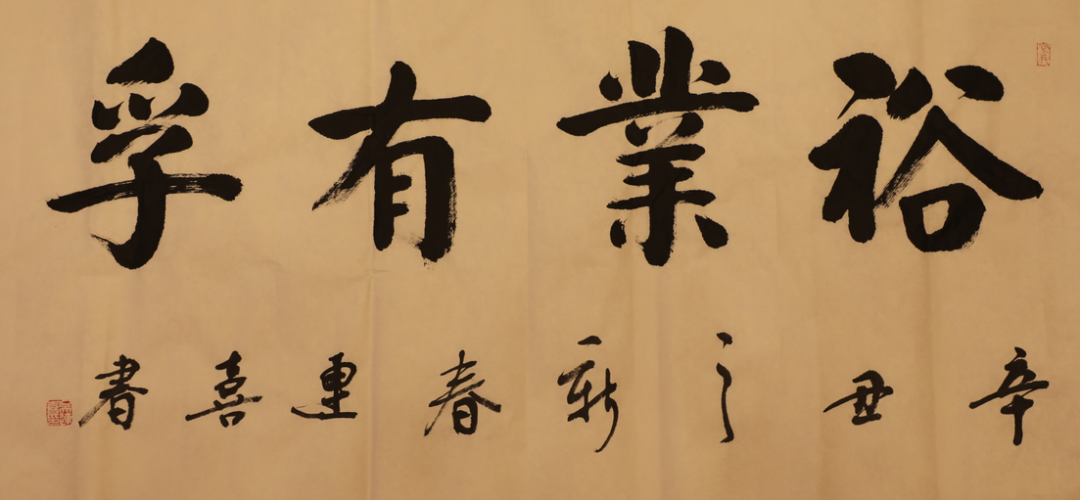 裕業有孚
辛丑之新春連喜書